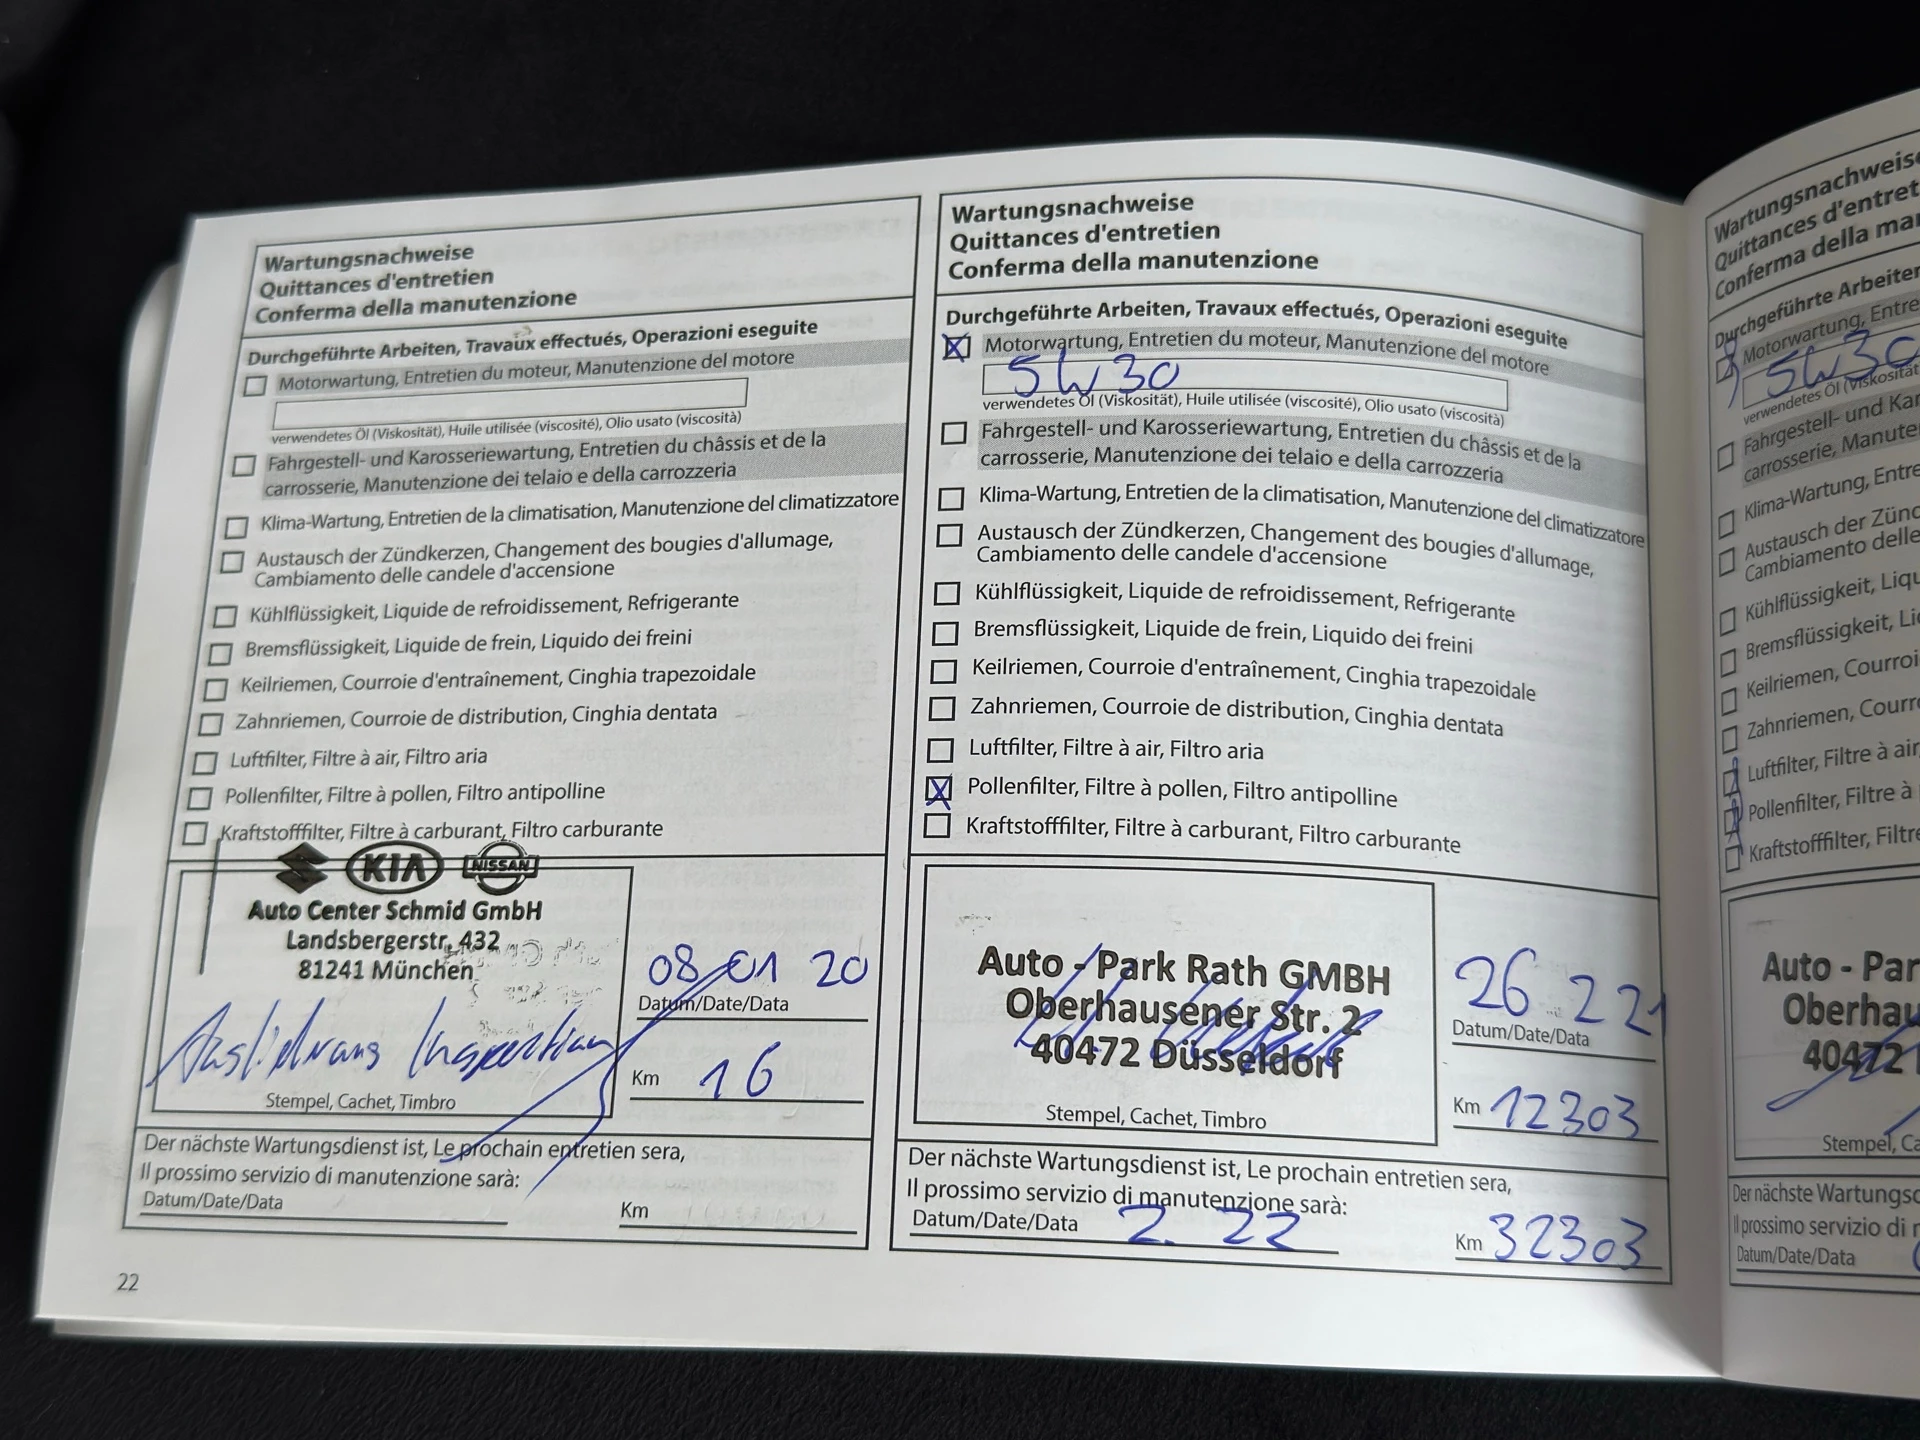 Wartungsnachweise
Quittances d'entretien
Conferma della manutenzione
Durchgeführte Arbeiten, Travaux effectués, Operazioni eseguite
Motorwartung, Entretien du moteur, Manutenzione del motore
verwendetes Öl (Viskosität), Huile utilisée (viscosité), Olio usato (viscosità)
Fahrgestell- und Karosseriewartung, Entretien du châssis et de la
carrosserie, Manutenzione dei telaio e della carrozzeria
Klima-Wartung, Entretien de la climatisation, Manutenzione del climatizzatore
Austausch der Zündkerzen, Changement des bougies d'allumage,
Cambiamento delle candele d'accensione
Kühlflüssigkeit, Liquide de refroidissement, Refrigerante
Bremsflüssigkeit, Liquide de frein, Liquido dei freini
Keilriemen, Courroie d'entraînement, Cinghia trapezoidale
Zahnriemen, Courroie de distribution, Cinghia dentata
Luftfilter, Filtre à air, Filtro aria
Pollenfilter, Filtre à pollen, Filtro antipolline
Kraftstofffilter, Filtre à carburant, Filtro carburante
KIA NISSAN
Auto Center Schmid GmbH
Landsbergerstr. 432
81241 München
08 01 20
Datum/Date/Data
Inspektion
Km 16
Stempel, Cachet, Timbro
Der nächste Wartungsdienst ist, Le prochain entretien sera,
Il prossimo servizio di manutenzione sarà:
Datum/Date/Data
Km
22
Wartungsnachweise
Quittances d'entretien
Conferma della manutenzione
Durchgeführte Arbeiten, Travaux effectués, Operazioni eseguite
Motorwartung, Entretien du moteur, Manutenzione del motore
5W30
verwendetes Öl (Viskosität), Huile utilisée (viscosité), Olio usato (viscosità)
Fahrgestell- und Karosseriewartung, Entretien du châssis et de la
carrosserie, Manutenzione dei telaio e della carrozzeria
Klima-Wartung, Entretien de la climatisation, Manutenzione del climatizzatore
Austausch der Zündkerzen, Changement des bougies d'allumage,
Cambiamento delle candele d'accensione
Kühlflüssigkeit, Liquide de refroidissement, Refrigerante
Bremsflüssigkeit, Liquide de frein, Liquido dei freini
Keilriemen, Courroie d'entraînement, Cinghia trapezoidale
Zahnriemen, Courroie de distribution, Cinghia dentata
Luftfilter, Filtre à air, Filtro aria
Pollenfilter, Filtre à pollen, Filtro antipolline
Kraftstofffilter, Filtre à carburant, Filtro carburante
Auto - Park Rath GMBH
Oberhausener Str. 2
40472 Düsseldorf
26 2 21
Datum/Date/Data
Km 12303
Stempel, Cachet, Timbro
Der nächste Wartungsdienst ist, Le prochain entretien sera,
Il prossimo servizio di manutenzione sarà:
Datum/Date/Data 2. 22
Km 32303
Wartungsnachweise
Quittances d'entret
Conferma della ma
Durchgeführte Arbeiten
Motorwartung, Entre
5W30
verwendetes Öl (Viskosität
Fahrgestell- und Kar
carrosserie, Manute
Klima-Wartung, Entre
Austausch der Zünd
Cambiamento delle
Kühlflüssigkeit, Liqu
Bremsflüssigkeit, Li
Keilriemen, Courroi
Zahnriemen, Courr
Luftfilter, Filtre à air,
Pollenfilter, Filtre à
Kraftstofffilter, Filtre
Auto - Par
Oberhau
40472
Stempel, Ca
Der nächste Wartungsd
Il prossimo servizio di m
Datum/Date/Data